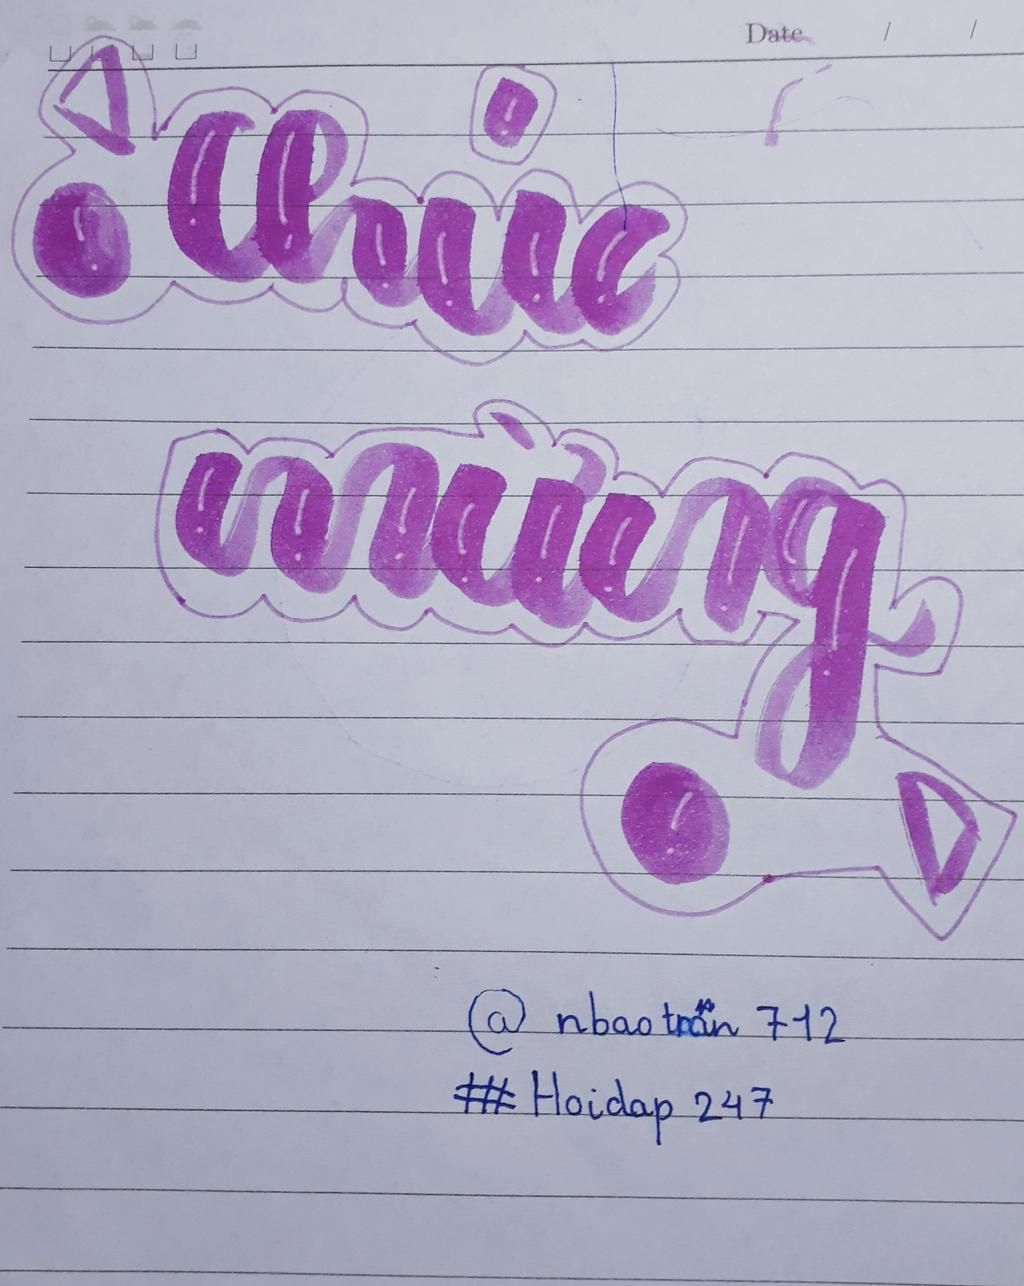 Date / /
Chúc
mừng
@ nbaotrân 712
# Hoidap 247